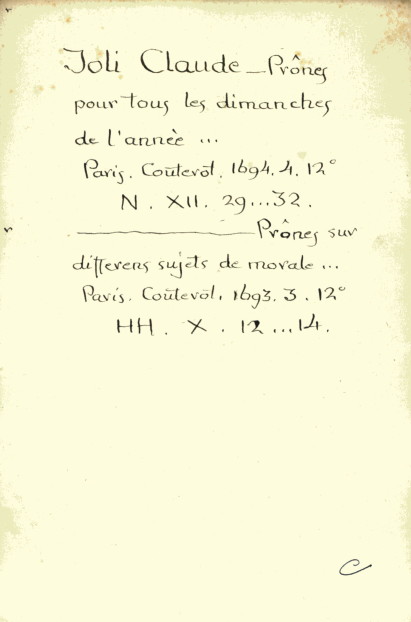 Joli Claude — Prônes
pour tous les dimanches
de l'annèe ...
Paris. Coûterôt. 1694. 4. 12°
N. XII. 29...32.
———— Prônes sur
differens sujets de morale ...
Paris. Coûterôt. 1693. 3. 12°
HH. X. 12...14.
C